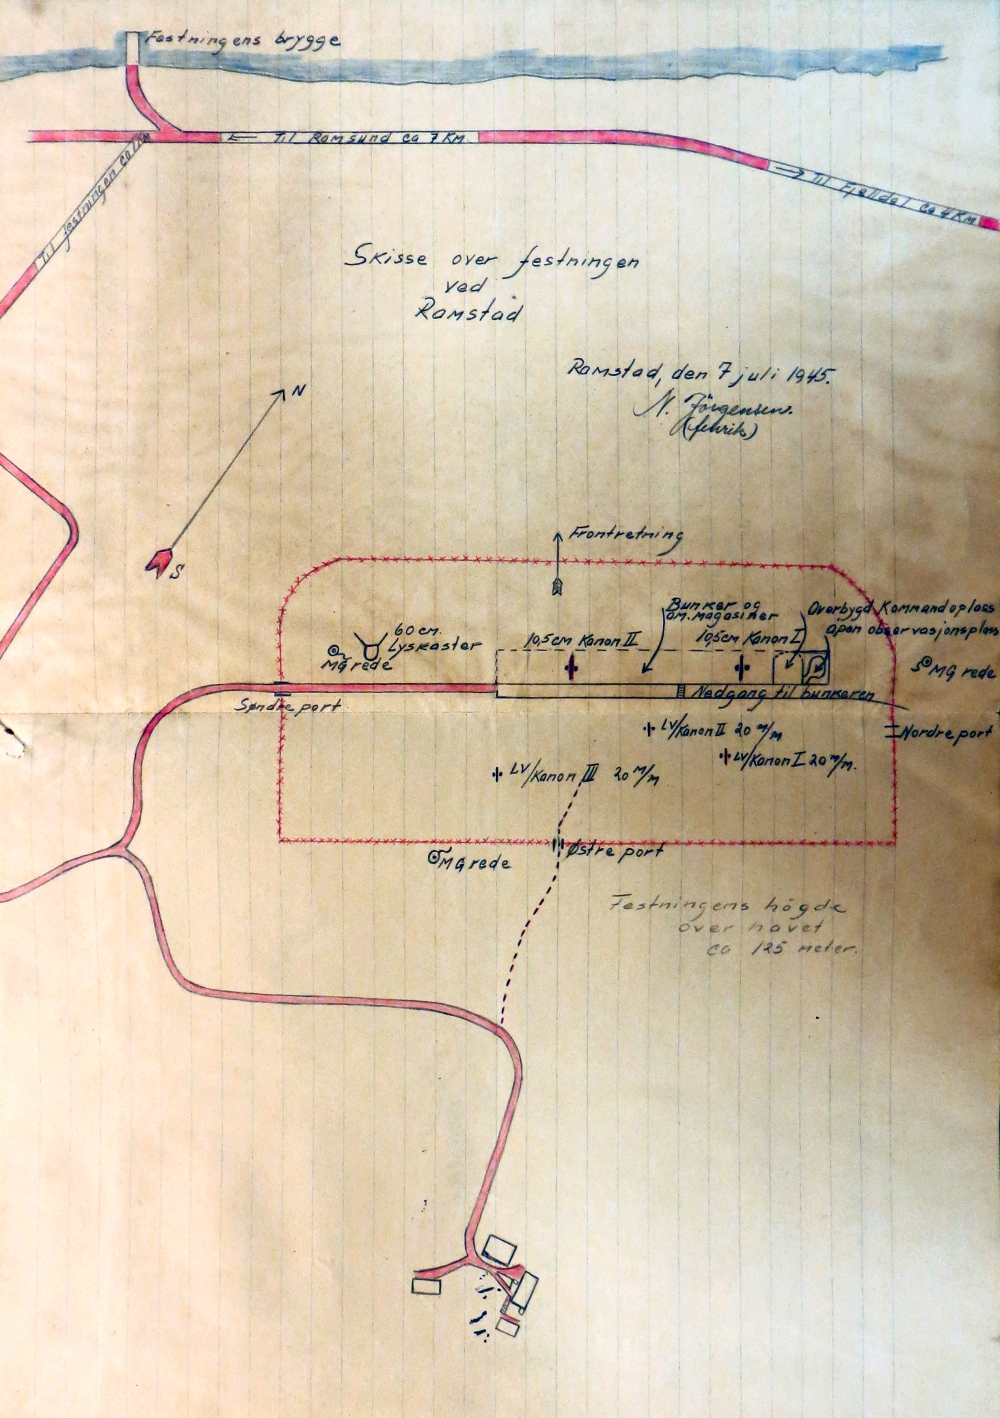 Festningens brygge
← Til Ramsund ca 7 Km.
→ Til Fjelldal ca 4 Km
Til festningen ca 1 Km
Skisse over festningen
ved
Ramstad
Ramstad, den 7 juli 1945.
N. Jörgensen.
(fenrik)
N
S
Frontretning
Bunker og
am.magasiner
Overbygd Kommandoplass
åpen observasjonsplass
60 cm.
Lyskaster
MG rede
10,5 cm Kanon II
10,5 cm Kanon I
MG rede
Nedgang til bunkeren
Søndre port
Nordre port
LV/Kanon II 20 m/m
LV/Kanon I 20 m/m.
LV/Kanon III 20 m/m
MG rede
Østre port
Festningens högde
over havet
ca 125 meter.